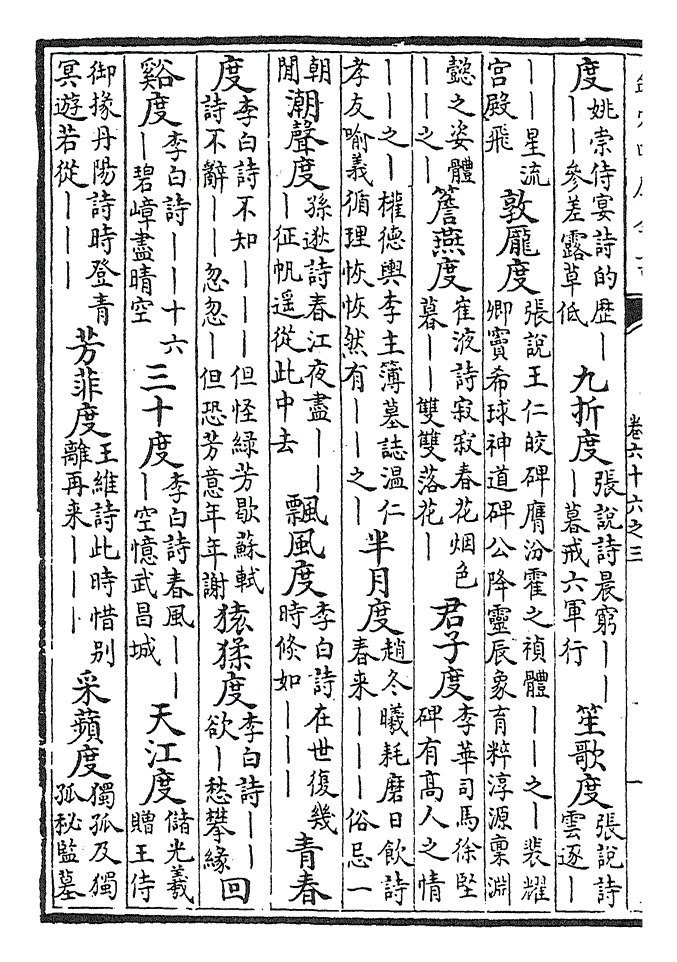 卷六十六之三
度姚崇侍宴詩的歷一一一參差露草低九折度張說詩晨窮一一一暮戒六軍行笙歌度張說詩雲逐一
一一星流宮殿飛敦龐度張說王仁皎碑膺汾霍之禎體一一之一裴耀卿竇希球神道碑公降靈辰象育粹淳源稟淵
懿之姿體一一之一簷燕度崔液詩寂寂春花烟色暮一一雙雙落花一君子度李華司馬徐堅碑有高人之情
一一之一權德輿李主簿墓誌溫仁孝友喻義循理恢恢然有一一之一半月度趙冬曦耗磨日飲詩春来一一一俗忌一
朝閒潮聲度孫逖詩春江夜盡一一一征帆遥從此中去飄風度李白詩在世復幾時倐如一一一青春
度李白詩不知一一一但怪綠芳歇蘇軾詩不辭一一忽忽一但恐芳意年年謝猿猱度李白詩一一欲一愁攀緣回
谿度李白詩一一一十六一碧嶂盡晴空三十度李白詩春風一一一空憶武昌城天江度儲光羲贈王侍
御掾丹陽詩時登青冥遊若從一一一芳菲度王維詩此時惜別離再来一一一采蘋度獨孤及獨孤秘監墓